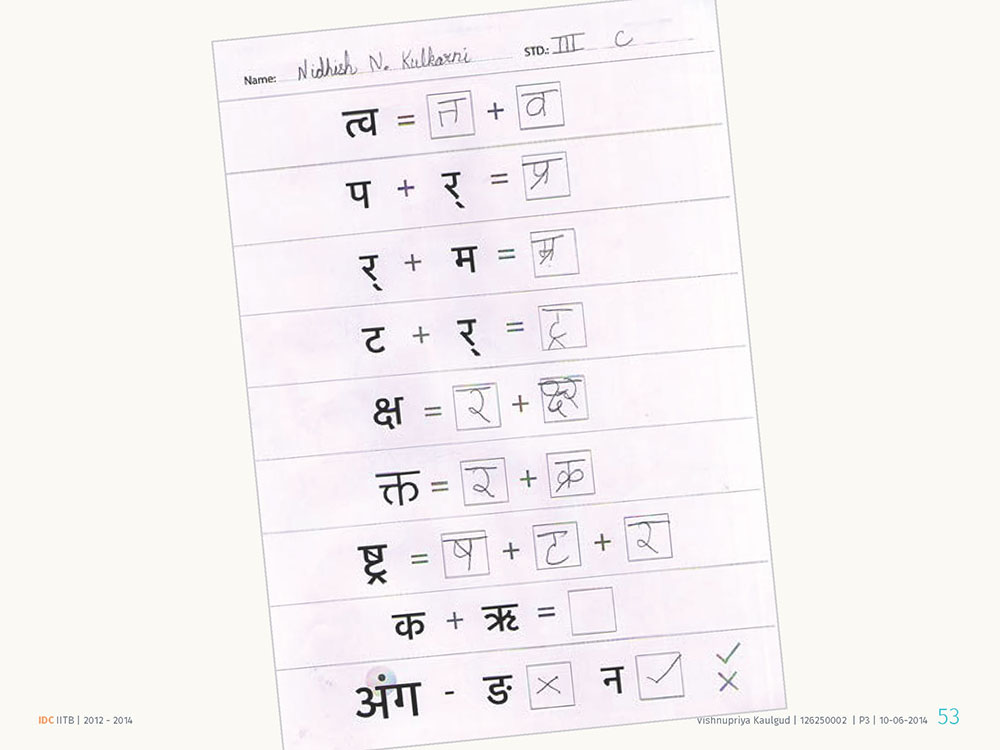 Name: Nidhish N. Kulkarni STD.: III C
त्व = त + व
प + र् = प्र
र् + म = म्र
ट + र् = ट्र
क्ष = र +
क्त = र + क्र
ष्ट्र = ष + ट + र
क + ऋ =
अंग - ङ × न ✓ ✓
×
IDC IITB | 2012 - 2014 Vishnupriya Kaulgud | 126250002 | P3 | 10-06-2014 53